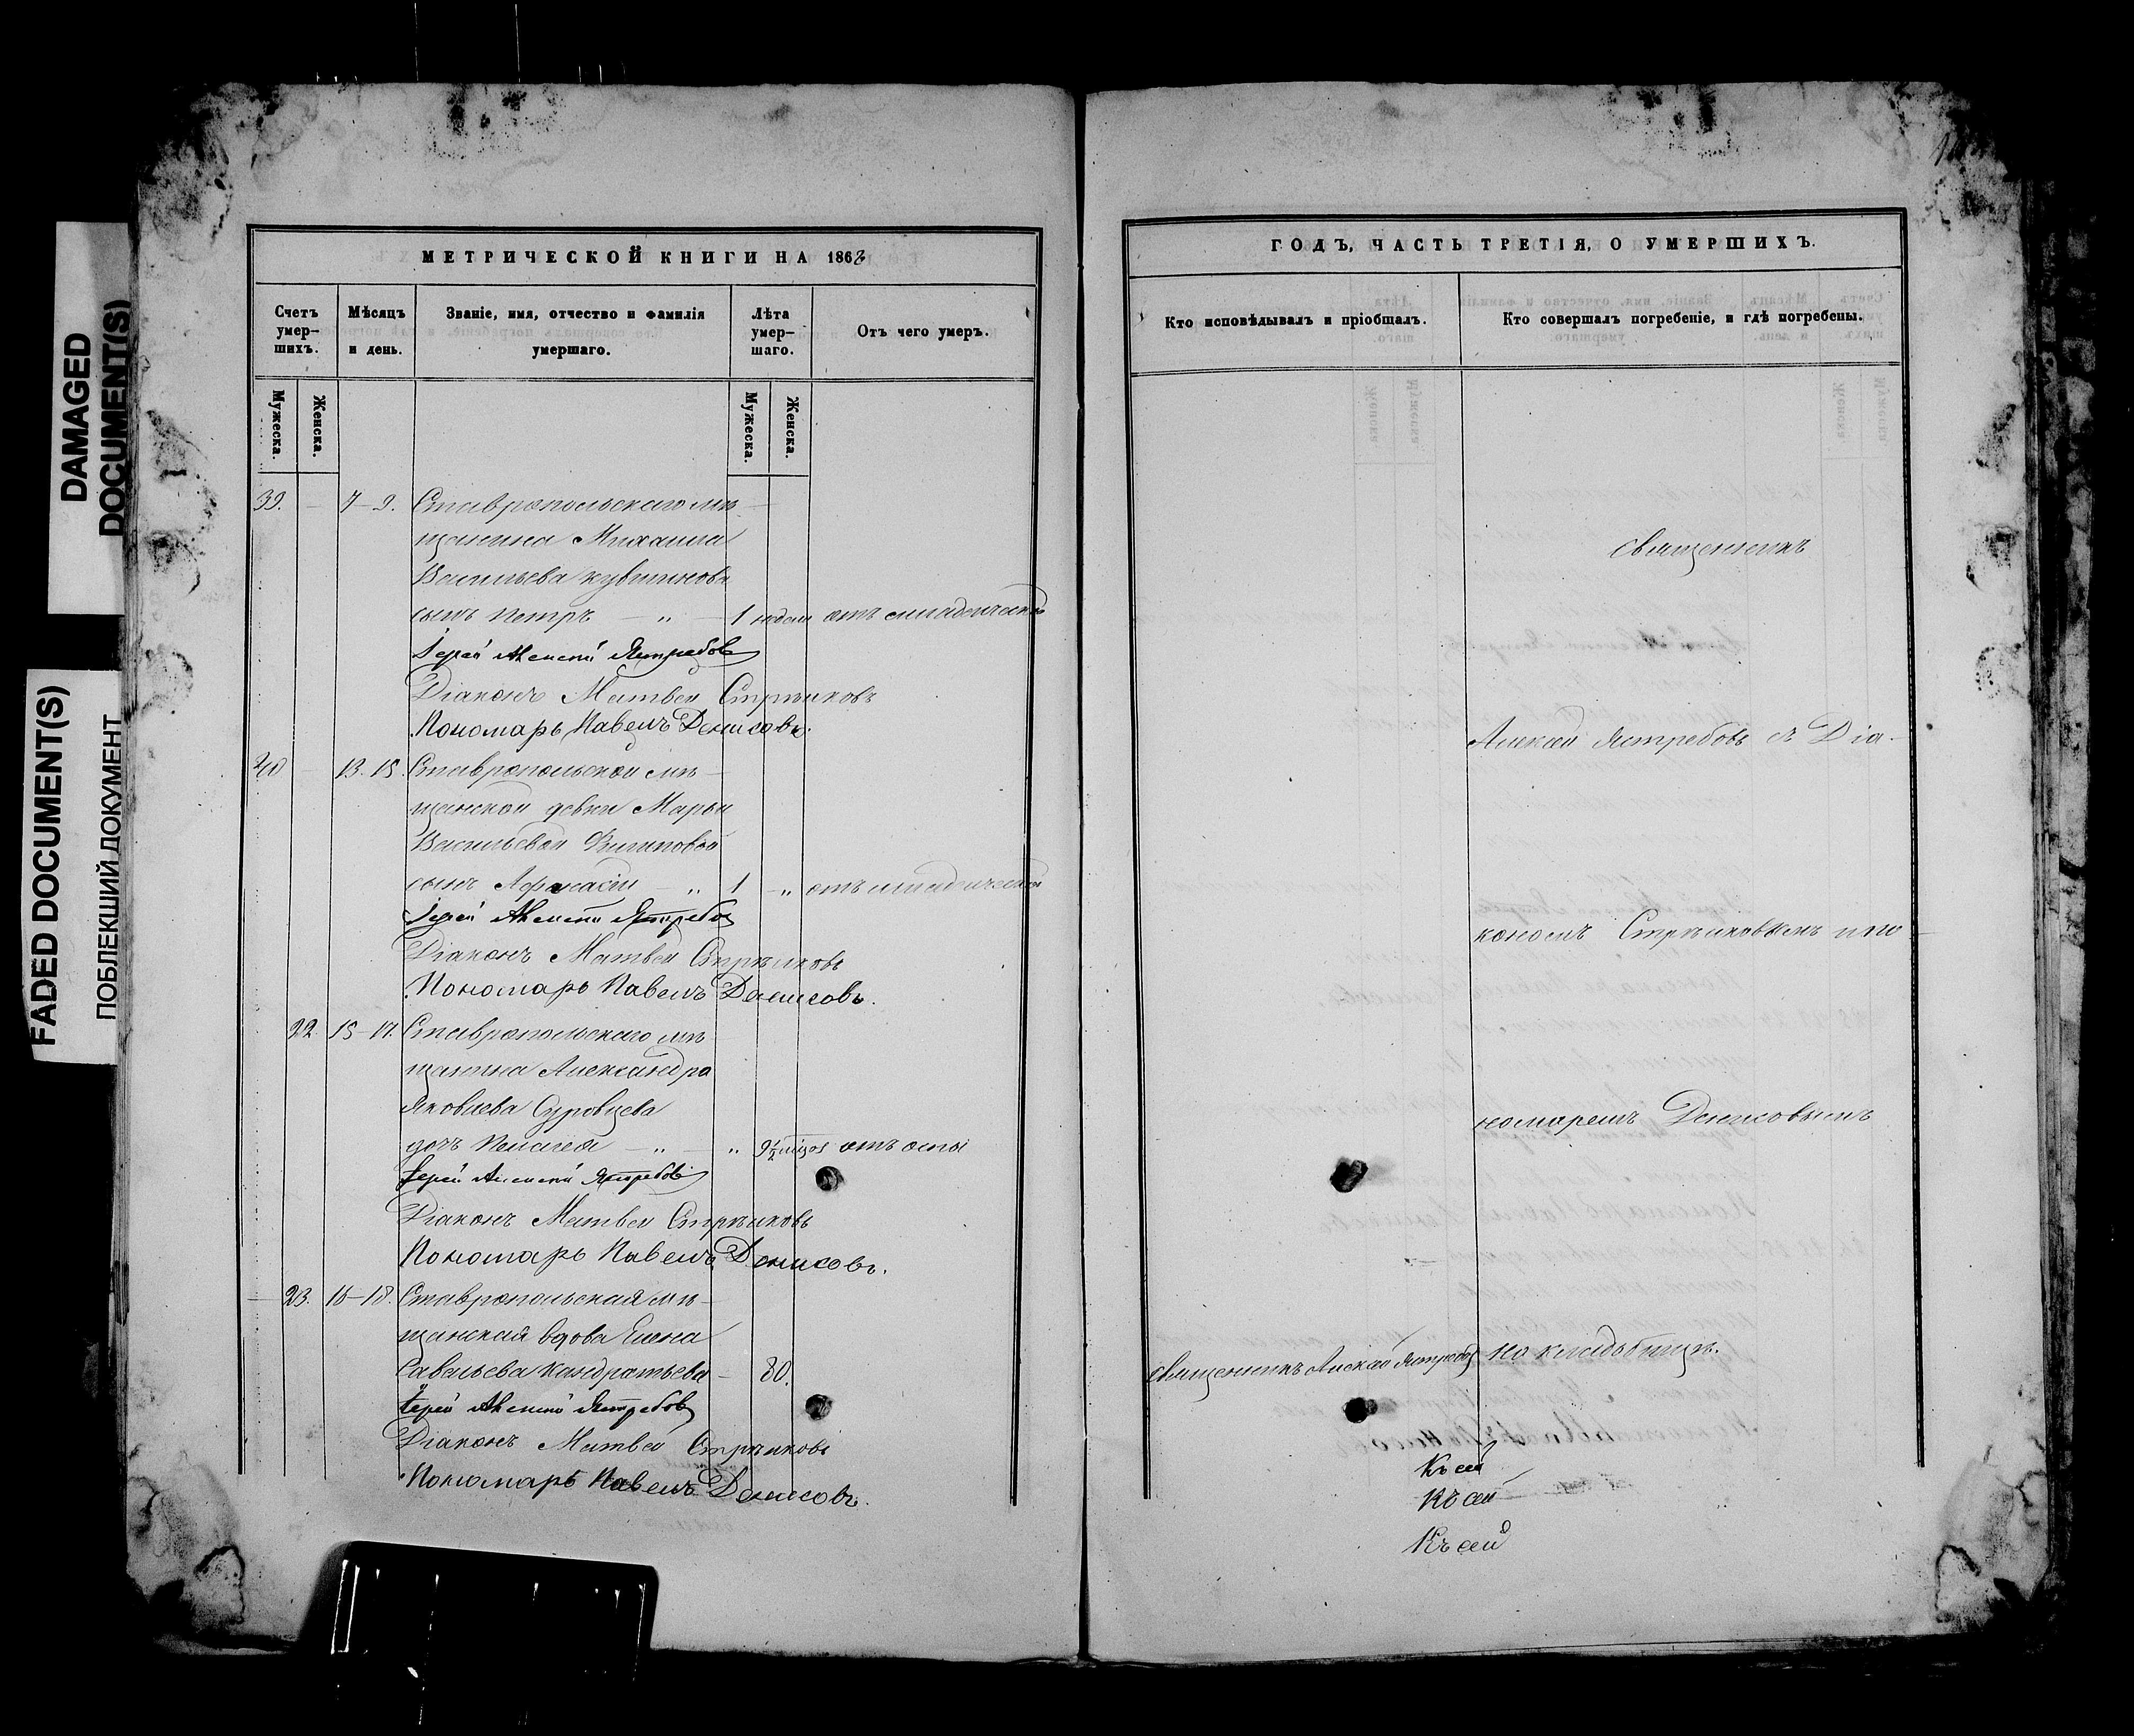 DAMAGED
DOCUMENT(S)
FADED DOCUMENT(S)
ПОБЛЕКШИЙ ДОКУМЕНТ
МЕТРИЧЕСКОЙ КНИГИ НА 1863
Счетъ умер-шихъ.
Мѣсяцъ и день.
Званіе, имя, отчество и фамилія умершаго.
Лѣта умер-шаго.
Отъ чего умеръ.
Мужеска.
Женска.
Мужеска.
Женска.
39. – 7–9. Ставропольскаго мѣ–
щанина Михаила
Васильева Кувшинова
сынъ Петръ – „ – 1 недели отъ младенческой
Іерей Алексій Ястребовъ
Діаконъ Матвей Стрѣлковъ
Пономарь Павелъ Денисовъ.
40 – 13. 15. Ставропольской мѣ–
щанской девки Марьи
Васильевой Филиповой
сынъ Афонасій – „ 1 – „ отъ младенческой
Іерей Алексій Ястребовъ
Діаконъ Матвей Стрѣлковъ
Пономарь Павелъ Денисовъ.
22. 15–17. Ставропольскаго мѣ
щанина Александра
Яковлева Суровцева
дочь Пелагея – „ – „ 9½ мцов отъ оспы
Іерей Алексій Ястребовъ
Діаконъ Матвей Стрѣлковъ
Пономарь Павелъ Денисовъ.
– 23. 16–18. Ставропольская мѣ–
щанская вдова Елена
Савельева Кандратьева – 80.
Іерей Алексій Ястребовъ
Діаконъ Матвей Стрѣлковъ
Пономарь Павелъ Денисовъ.
ГОДЪ, ЧАСТЬ ТРЕТІЯ, О УМЕРШИХЪ.
Кто исповѣдывалъ и пріобщалъ.
Кто совершалъ погребеніе, и гдѣ погребены.
священникъ
Алексей Ястребовъ съ Діа–
кономъ Стрѣлковымъ и по–
номаремъ Денисовымъ
священникъ Алексей Ястребовъ
на кладбищѣ.
Къ сей
Къ сей
Къ сей